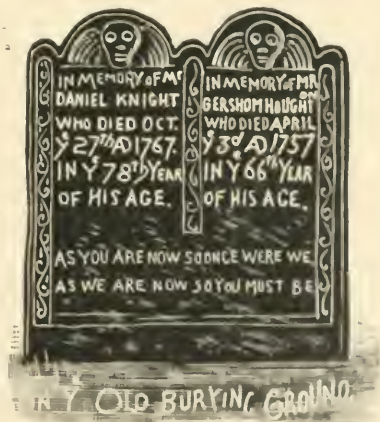 IN MEMORY of Mr
DANIEL KNIGHT
WHO DIED OCT.
Y 27th AD 1767.
IN Ye 78Th YEAR
OF HIS AGE.
IN MEMORY of MR
GERSHOM HOUGHTon
WHO DIED APRIL
Y 3d AD 1757
IN Ye 66th YEAR
OF HIS AGE.
AS YOU ARE NOW SO ONCE WERE WE
AS WE ARE NOW SO YOU MUST BE
IN Y OLD BURYING GROUND.